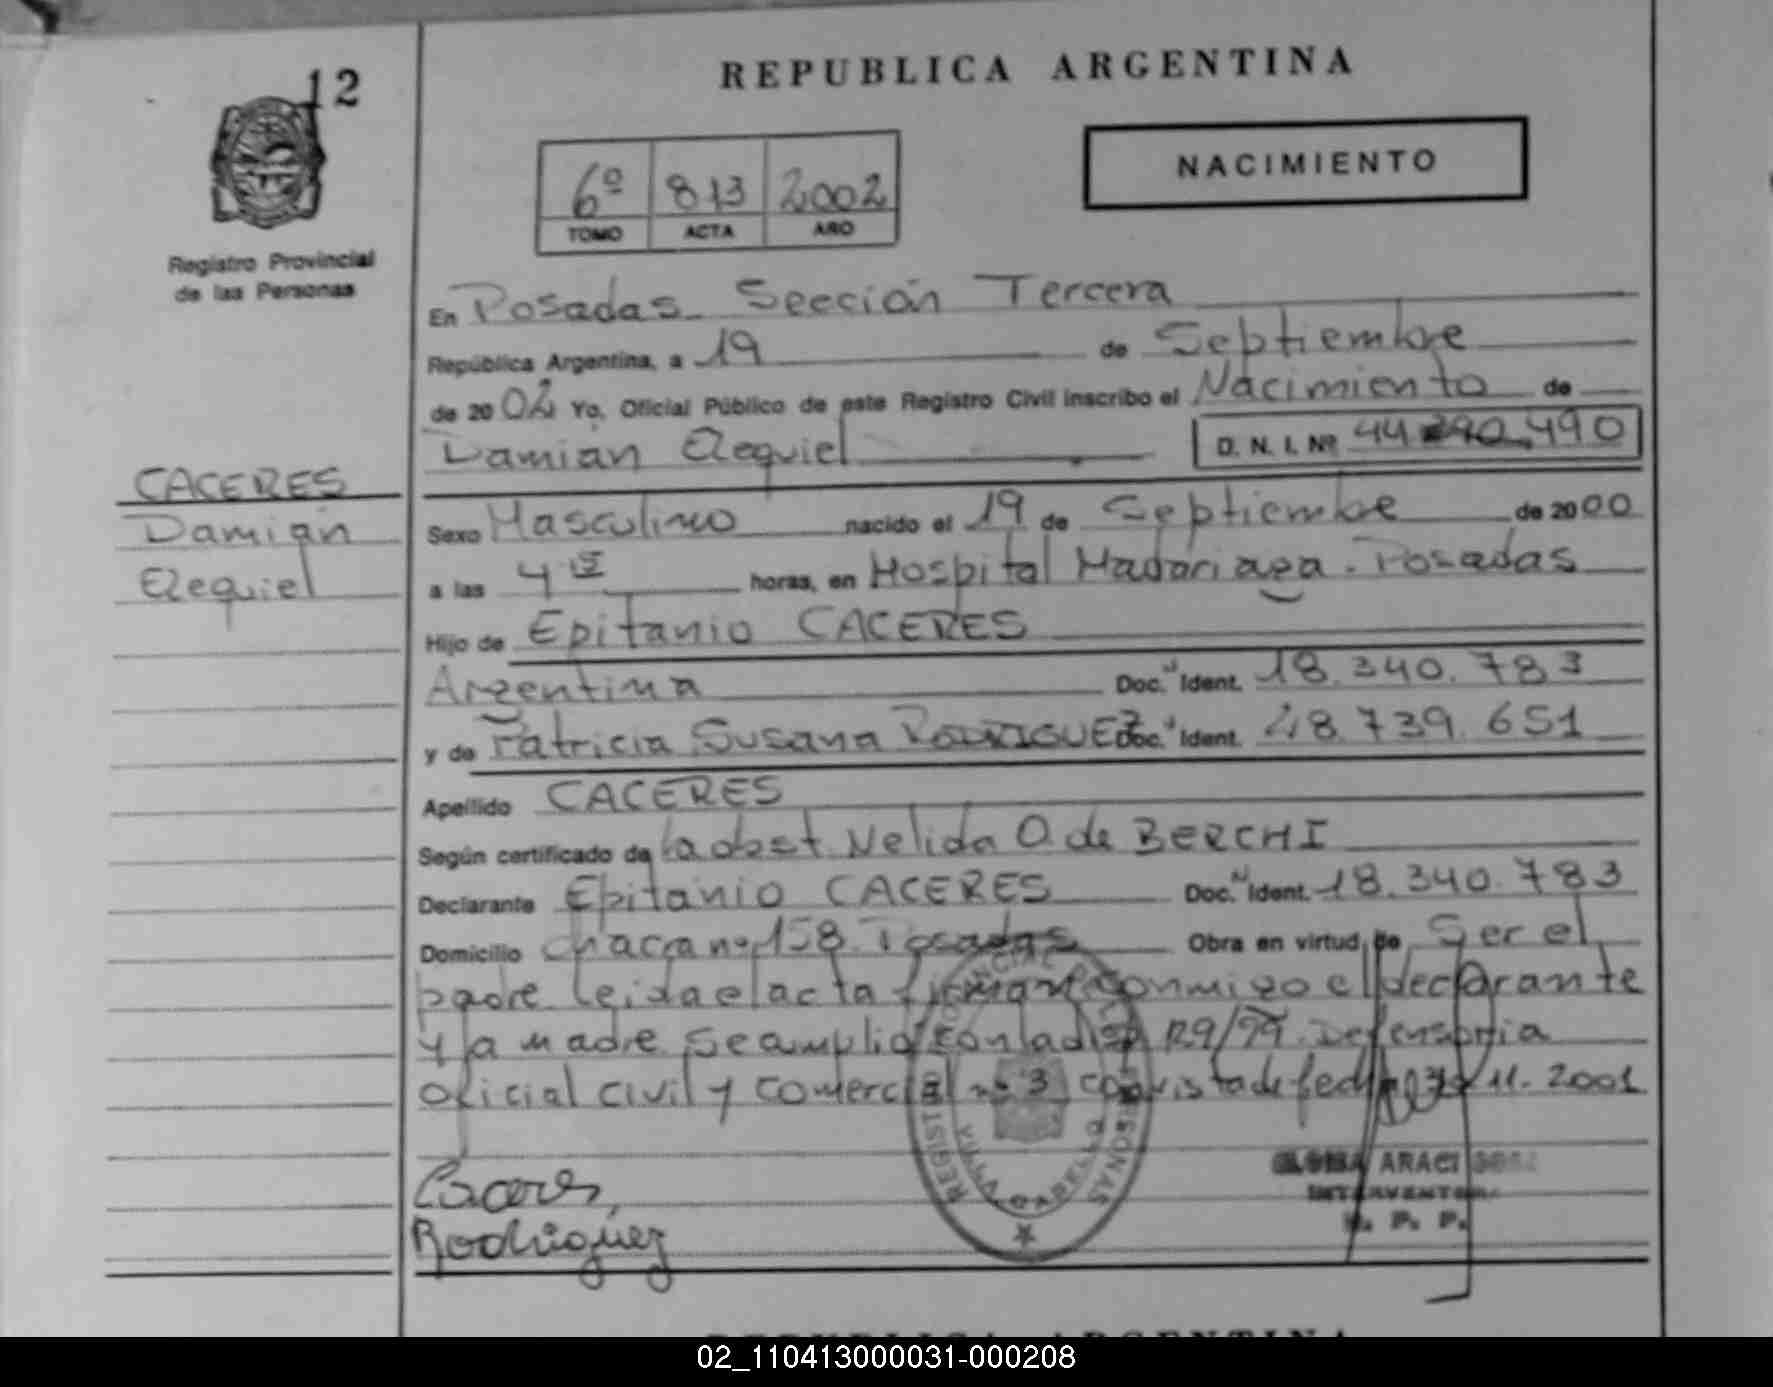 12
REPUBLICA ARGENTINA
NACIMIENTO
6º 813 2002
TOMO ACTA AÑO
Registro Provincial
de las Personas
En Posadas Sección Tercera
República Argentina, a 19 de Septiembre
de 2002 Yo, Oficial Público de este Registro Civil inscribo el Nacimiento de
Damian Ezequiel D. N. I. Nº 44 490
CACERES
Damian
Ezequiel
Sexo Masculino nacido el 19 de Septiembre de 2000
a las 4 horas, en Hospital Madariaga. Posadas
Hijo de Epifanio CACERES
Argentina Doc. Ident. 18.340.783
y de Patricia Susana RODRIGUEZ Doc. Ident. 18.739.651
Apellido CACERES
Según certificado de la obst Nelida O. de BERCHI
Declarante Epifanio CACERES Doc. Ident. 18.340.783
Domicilio chacra nº 158. Posadas Obra en virtud de Ser el
padre leida el acta firman conmigo el declarante
y la madre se amplia con la disp 129/99. Defensoria
Oficial civil y comercial nº 3 con vista de fecha 11. 2001
Caceres,
Rodriguez
ARACI
INTERVENTORA
R. P. P.
REPUBLICA ARGENTINA
02_110413000031-000208